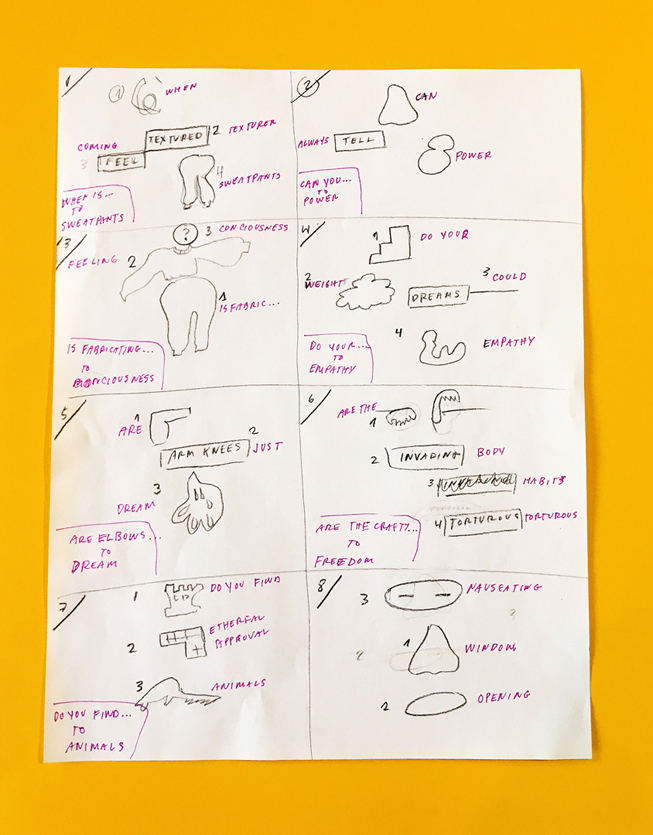 1/
1 WHEN
TEXTURED 2 TEXTURER
COMING
3 FEEL
4 SWEATPANTS
WHEN IS...
TO
SWEATPANTS
2/
CAN
ALWAYS TELL
POWER
CAN YOU...
TO
POWER
3/
? 3 CONCIOUSNESS
FEELING 2
1
IS FABRIC...
IS FABRICATING...
TO
CONCIOUSNESS
4/
1 DO YOUR
2 WEIGHT
DREAMS 3 COULD
4 EMPATHY
DO YOUR...
TO
EMPATHY
5/
ARE 1
ARM KNEES 2 JUST
DREAM 3
ARE ELBOWS...
TO
DREAM
6/
ARE THE
1
2 INVADING BODY
3 HABITS
4 TORTUROUS TORTUROUS
ARE THE CRAFTY...
TO
FREEDOM
7/
1 DO YOU FIND
2 ETHEREAL
APPROVAL
3 ANIMALS
DO YOU FIND...
TO
ANIMALS
8/
3 NAUSEATING
2
1 WINDOW
2 OPENING